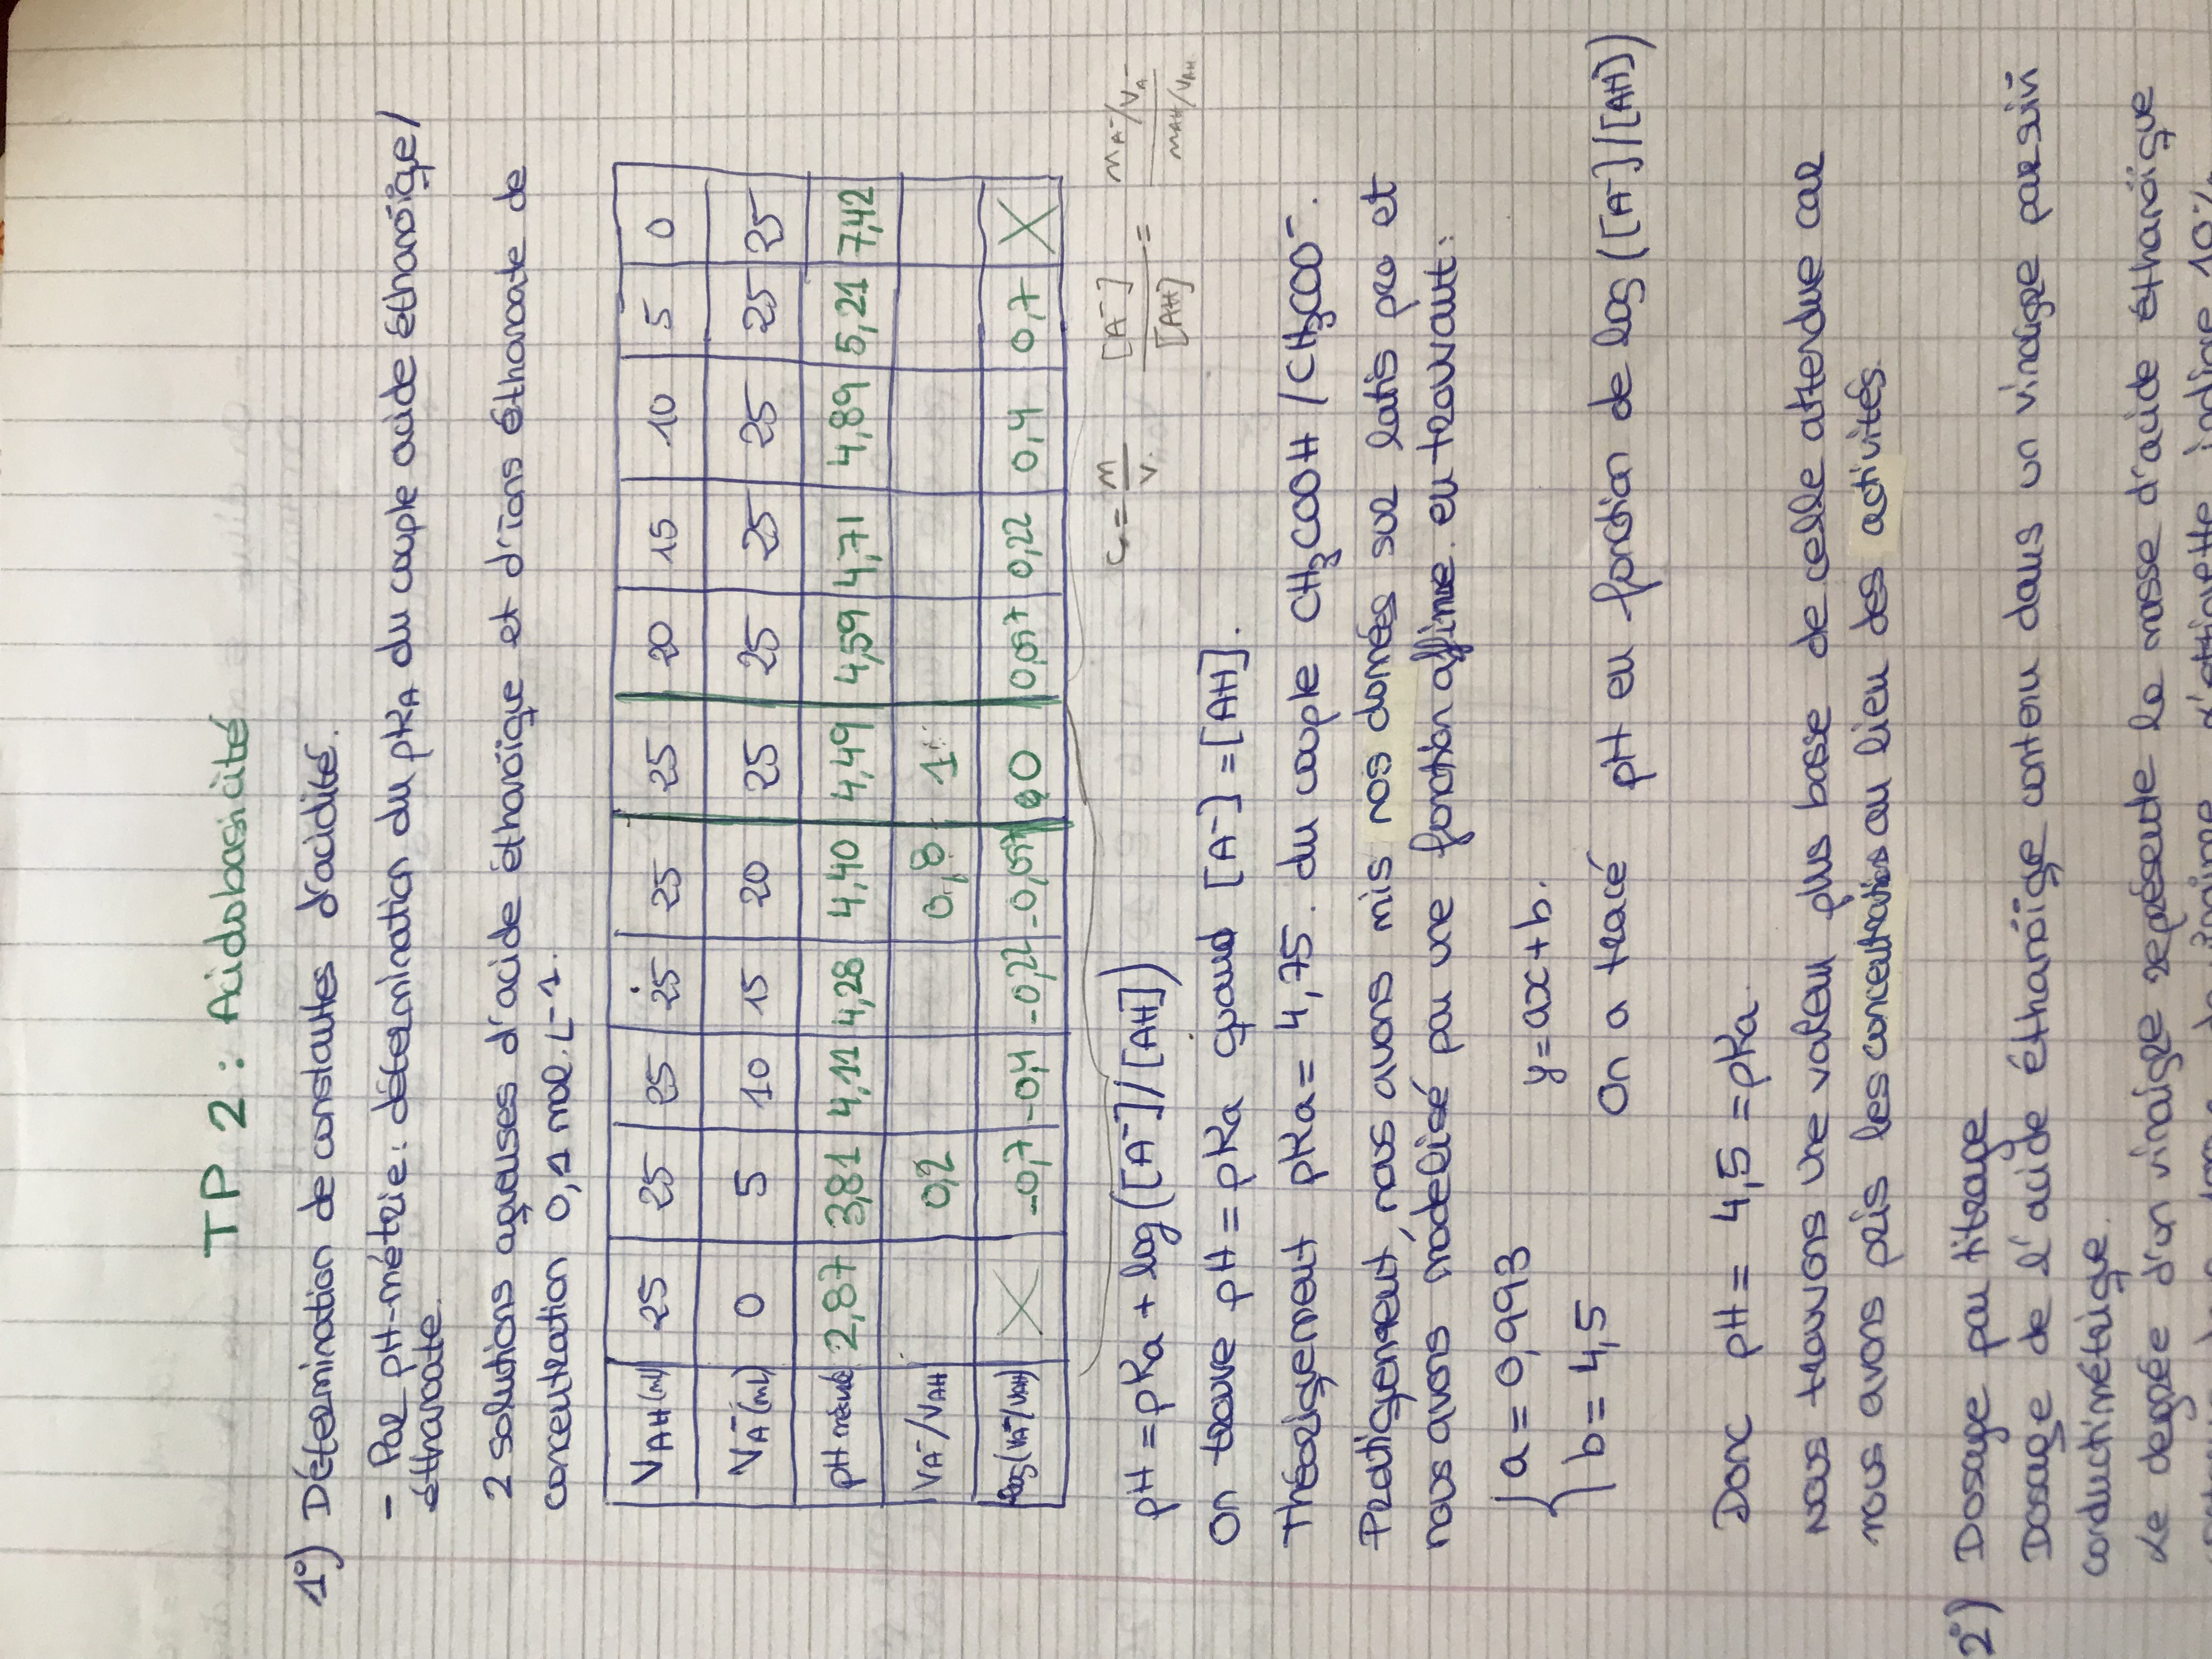 TP 2 : Acidobasicité
1°) Détermination de constantes d'acidité.
- Par pH-métrie : détermination du pKA du couple acide éthanoïque/
éthanoate.
2 solutions aqueuses d'acide éthanoïque et d'ions éthanoate de
concentration 0,1 mol.L-1.
VAH (mL) 25 25 25 25 25 25 20 15 10 5 0
VA- (mL) 0 5 10 15 20 25 25 25 25 25 25
pH mesuré 2,87 3,81 4,11 4,28 4,40 4,49 4,59 4,71 4,89 5,21 7,42
VA-/VAH 0,2 0,8 1
log(VA-/VAH) X -0,7 -0,4 -0,22 -0,097 0 0,097 0,22 0,4 0,7 X
pH = pKa + log([A-]/[AH])
C = n/V. [A-]/[AH] = nA-/VA- / nAH/VAH
On trouve pH = pKa quand [A-] = [AH].
Théoriquement pKa = 4,75. du couple CH3COOH / CH3COO-.
Pratiquement, nous avons mis nos données sur latis pro et
nous avons modélisé par une fonction affine en trouvant :
a = 0,993
y = ax + b.
b = 4,5
On a tracé pH en fonction de log([A-]/[AH])
Donc pH = 4,5 = pKa.
Nous trouvons une valeur plus basse de celle attendue car
nous avons pris les concentrations au lieu des activités.
2°) Dosage par titrage
Dosage de l'acide éthanoïque contenu dans un vinaigre par suivi
conductimétrique.
Le degrée d'un vinaigre représente la masse d'acide éthanoïque
de vinaigre l'étiquette indique 10%